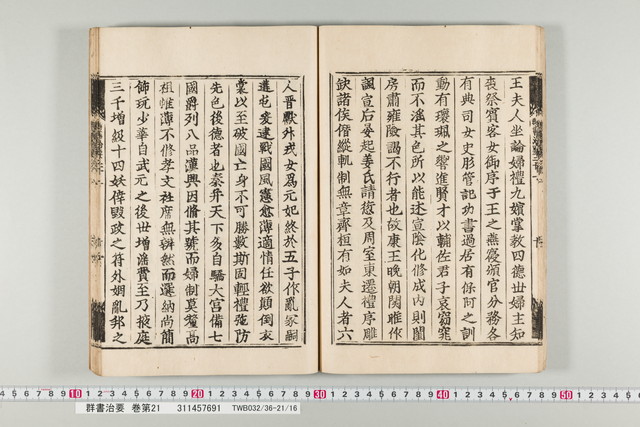 王夫人坐論婦禮九嬪掌教四德世婦主知
喪祭賓客女御序于王之燕寢頒官分務各
有典司女史彤管記功書過居有保阿之訓
動有環珮之響進賢才以輔佐君子哀窈窕
而不淫其色所以能述宣陰化修成內則閨
房肅雍險謁不行者也故康王晚朝關雎作
諷宣后晏起姜氏請愆及周室東遷禮序雕
缺諸侯僭縱軌制無章齊桓有如夫人者六
人晉獻升戎女爲元妃終於五子作亂冢嗣
遘屯爰逮戰國風憲愈薄適情任欲顛倒衣
裳以至破國亡身不可勝數斯固輕禮弛防
先色後德者也秦并天下多自驕大宮備七
國爵列八品漢興因循其號而婦制莫釐高
祖帷薄不修孝文衽席無辨然而選納尚簡
飾玩少華自武元之後世增淫費至乃掖庭
三千增級十四妖倖毀政之符外姻亂邦之
10 20 30 40 50
群書治要 巻第21 311457691 TWB032/36-21/16